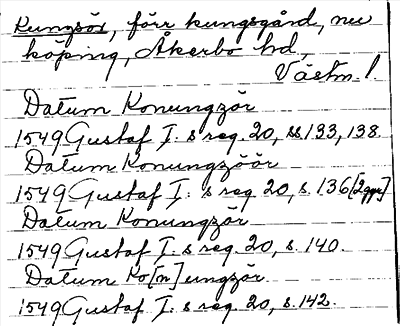 Kungsör, förr kungsgård, nu
köping, Åkerbo hd,
Västm. l
Datum Konungzör
1549 Gustaf I:s reg. 20, ss. 133, 138.
Datum Konungzöör
1549 Gustaf I:s reg. 20, s. 136 [2 ggr]
Datum Konungzör
1549 Gustaf I:s reg. 20, s. 140.
Datum Ko[n]ungzör
1549 Gustaf I:s reg. 20, s. 142.